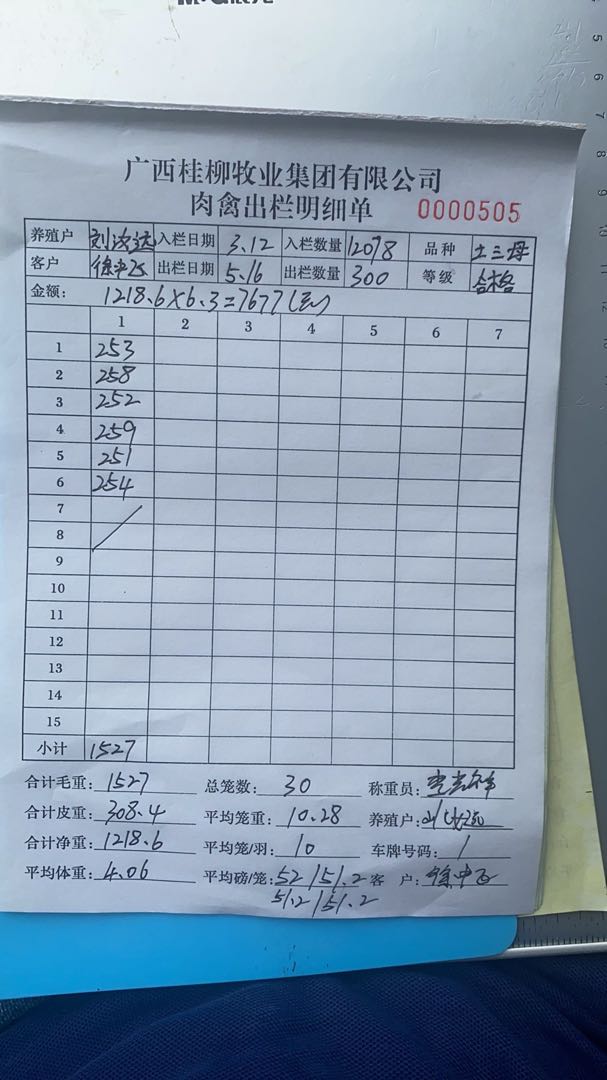 广西桂柳牧业集团有限公司
肉禽出栏明细单 0000505
养殖户 刘汝远 入栏日期 3.12 入栏数量 12078 品种 土三母
客户 徐中飞 出栏日期 5.16 出栏数量 300 等级 合格
金额: 1218.6×6.3=7677(元)
1 2 3 4 5 6 7
1 253
2 258
3 252
4 259
5 251
6 254
7
8
9
10
11
12
13
14
15
小计 1527
合计毛重: 1527 总笼数: 30 称重员:
合计皮重: 308.4 平均笼重: 10.28 养殖户:
合计净重: 1218.6 平均笼/羽: 10 车牌号码: /
平均体重: 4.06 平均磅/笼: 52/51.2 客 户: 徐中飞
51.2/51.2
5
6
7
8
9
10